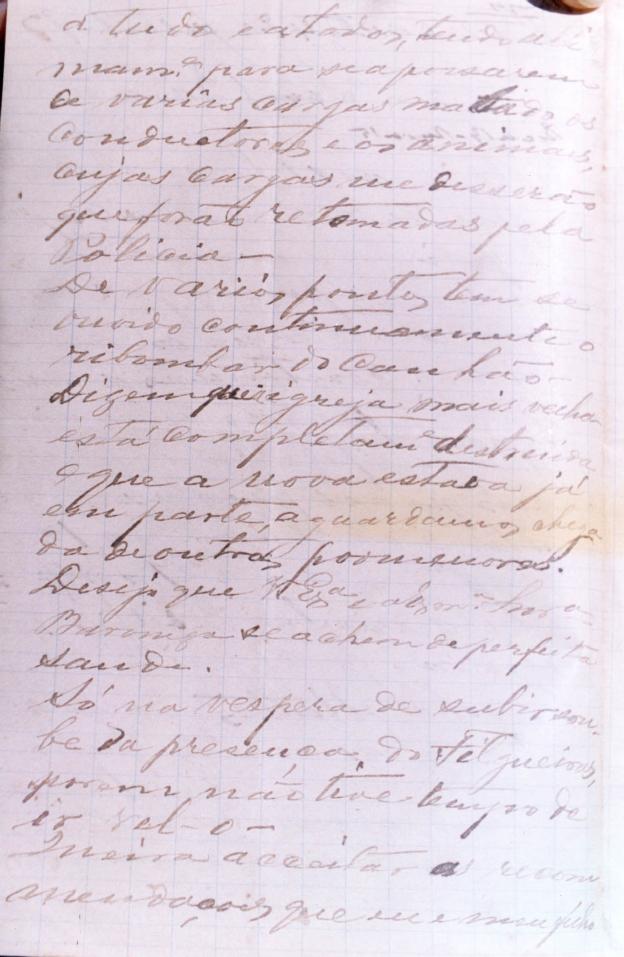 a tudo e a todos, tendo até
mam.ª para se aposarem
de varias cargas matado os
conductores e os animais,
cujas cargas me disserão
que forão retomadas pela
Policia —
De varios pontos tem se
ouvido continuamente o
ribombar do canhão —
Dizem que igreja mais velha
está completam.e destruida
e que a nova estava já
em parte, aguardamos chega-
da de outros pormenores.
Desejo que V. Ex.a e a
Baroneza se achem de perfeita
saude.
Só na vespera de subir sou-
be da presença do Filgueiras,
porem não tive tempo de
ir vel-o —
Queira acceitar as recom
mendações que eu e meu filho